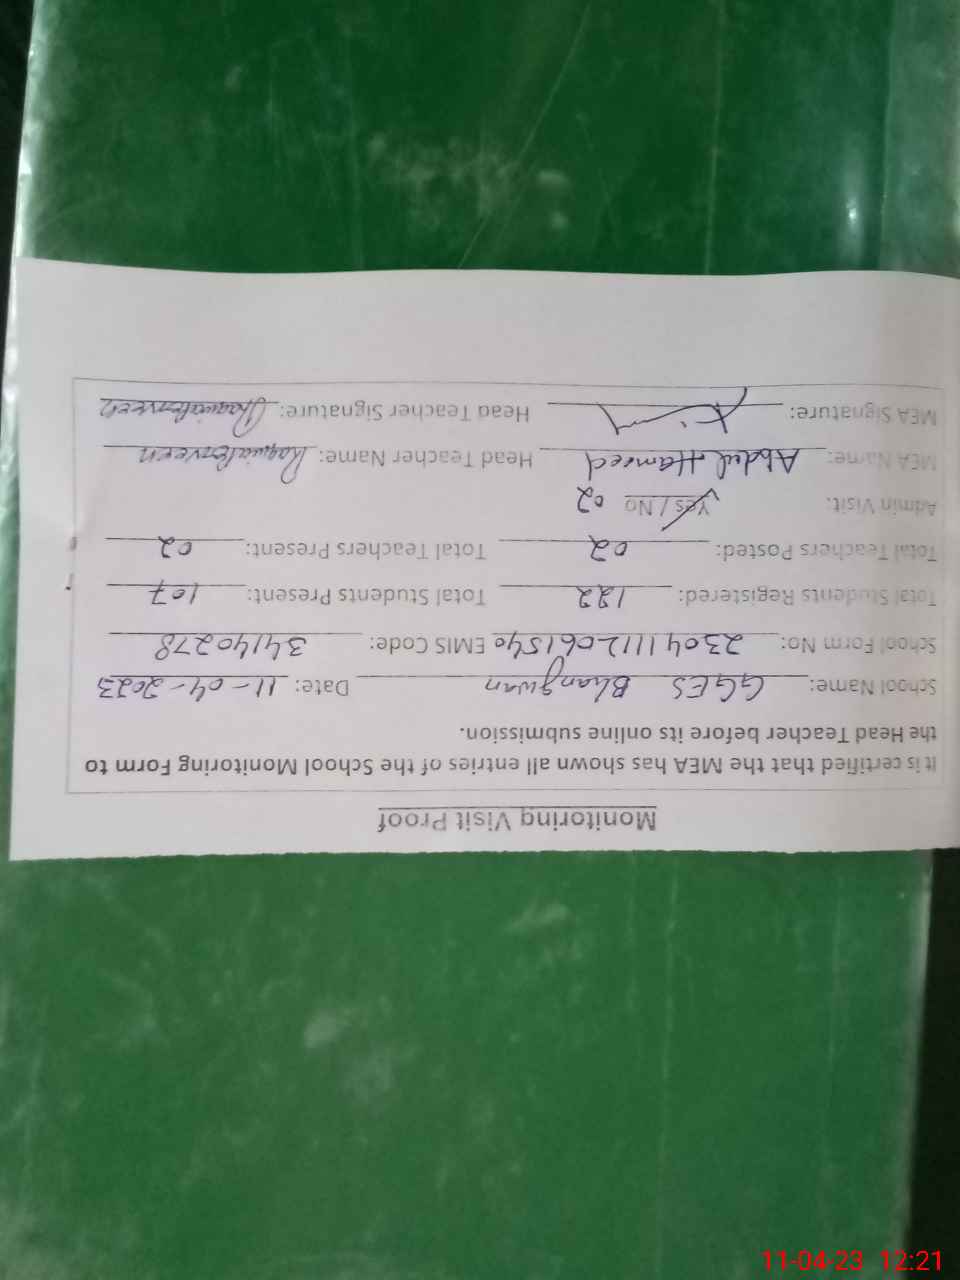 Monitoring Visit Proof
It is certified that the MEA has shown all entries of the School Monitoring Form to
the Head Teacher before its online submission.
School Name: GGES Bhangwan Date: 11-04-2023
School Form No: 23041112061540 EMIS Code: 34140278
Total Students Registered: 122 Total Students Present: 107
Total Teachers Posted: 02 Total Teachers Present: 02
Admin Visit: Yes / No 02
MEA Name: Abdul Hameed Head Teacher Name:
MEA Signature: Head Teacher Signature:
11-04-23 12:21